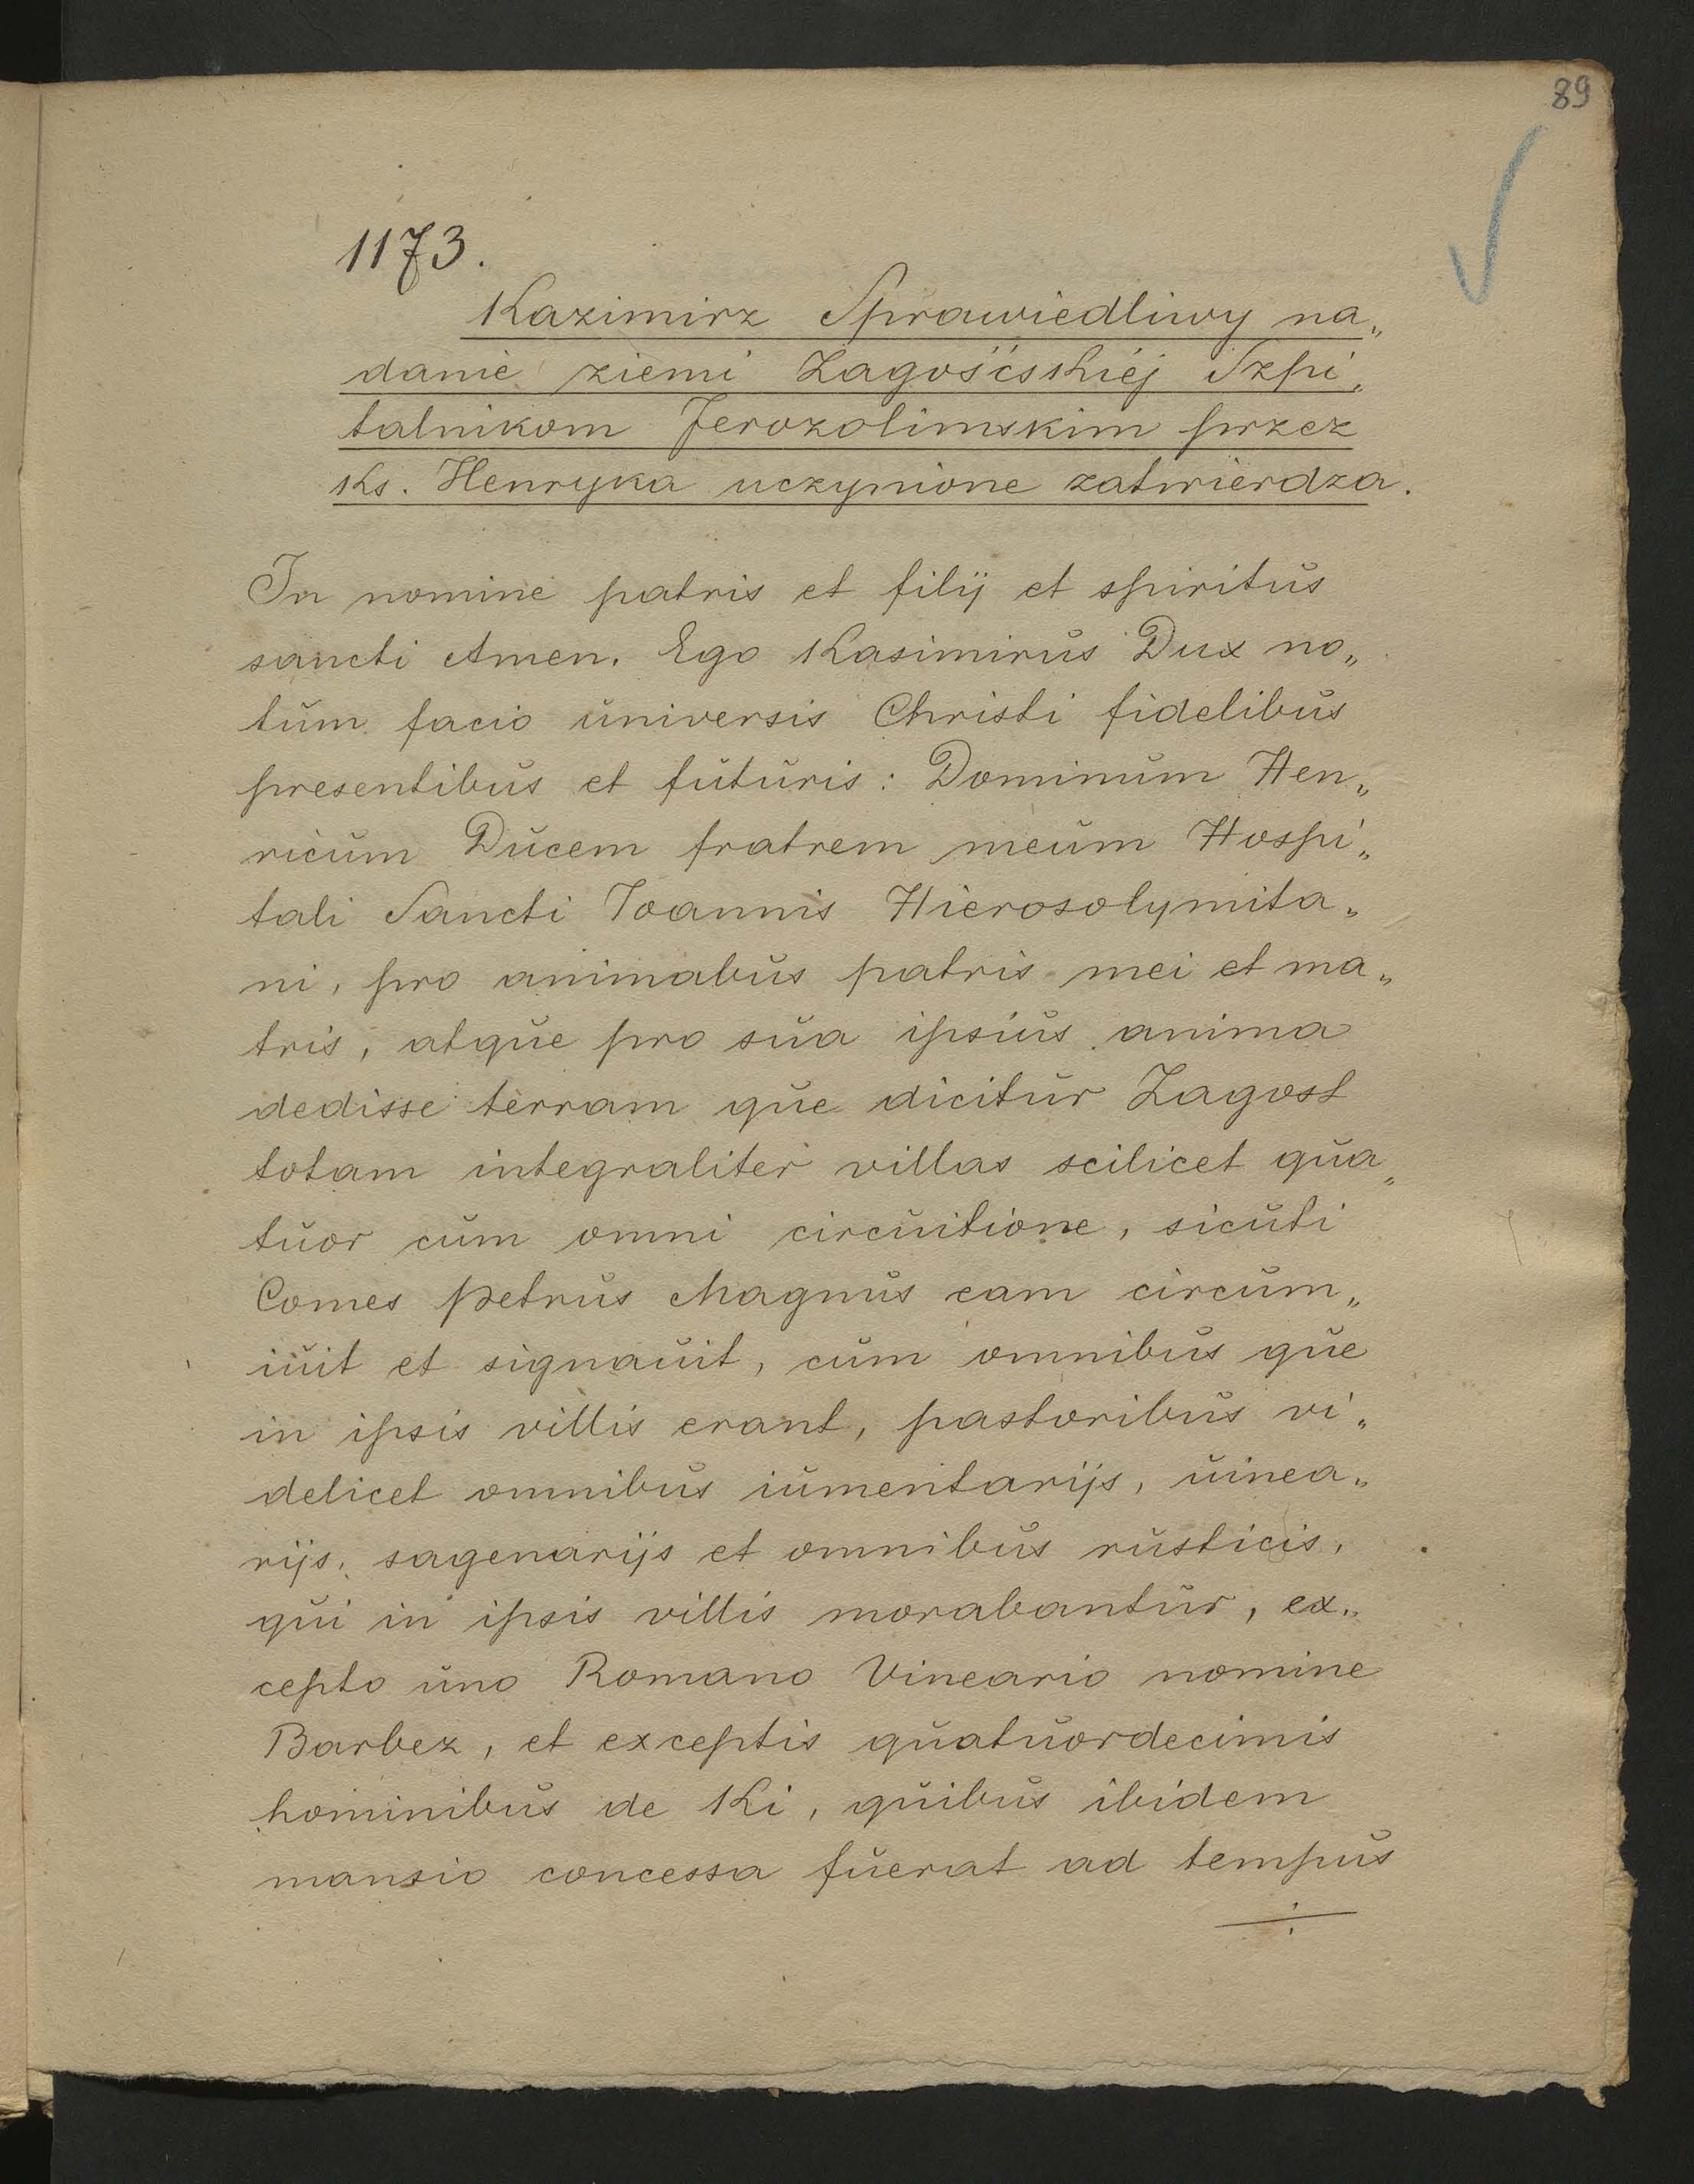 89
1173.
Kazimirz Sprawiedliwy na„
danie ziemi Zagośćskiéj Szpi„
talnikom Jerozolimskim przez
Ks. Henryka uczynione zatwierdza.
In nomine patris et filij et spiritŭs
sancti Amen. Ego Kasimirŭs Dux no„
tŭm facio ŭniversis Christi fidelibŭs
presentibŭs et fŭtŭris: Dominŭm Hen„
ricŭm Dŭcem fratrem meŭm Hospi„
tali Sancti Ioannis Hierosolymita„
ni, pro animabŭs patris mei et ma„
tris, atqŭe pro sŭa ipsiŭs anima
dedisse terram qŭe dicitŭr Zagost
totam integraliter villas scilicet qŭa„
tŭor cŭm omni circŭitione, sicŭti
Comes Petrŭs Magnŭs eam circŭm„
iŭit et signaŭit, cŭm omnibŭs qŭe
in ipsis villis erant, pastoribŭs vi„
delicet omnibŭs iŭmentarijs, ŭinea„
rijs, sagenarijs et omnibŭs rŭsticis,
qŭi in ipsis villis morabantŭr, ex„
cepto ŭno Romano Vineario nomine
Barbez, et exceptis qŭatŭordecimis
hominibŭs de Ki, qŭibŭs ibidem
mansio concessa fŭerat ad tempŭs